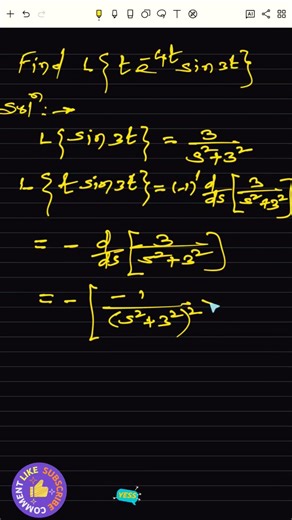 Find L{t e^-4t sin3t}
Solⁿ: →
L{sin3t} = 3/(s²+3²)
L{t sin3t} = (-1)' d/ds [3/(s²+3²)]
= - d/ds [3/(s²+3²)]
= - [-1/(s²+3²)²
COMMENT LIKE SUBSCRIBE
YESS